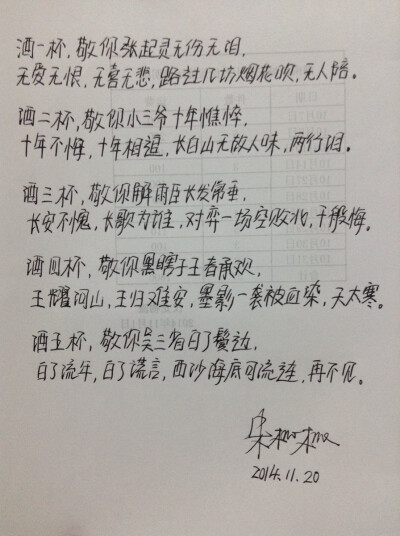 酒一杯，敬你张起灵无伤无泪，
无爱无恨，无喜无悲，路过几坊烟花吹，无人陪。
酒二杯，敬你小三爷十年憔悴，
十年不悔，十年相逼，长白山无故人味，两行泪。
酒三杯，敬你解雨臣长发常垂，
长安不愧，长歌为谁，对弈一场空败北，千般悔。
酒四杯，敬你黑瞎子王者承欢，
王耀河山，王归难安，墨影一袭被血染，天太寒。
酒五杯，敬你吴三省白了鬓边，
白了流年，白了谎言，西沙海底可流连，再不见。
2014.11.20